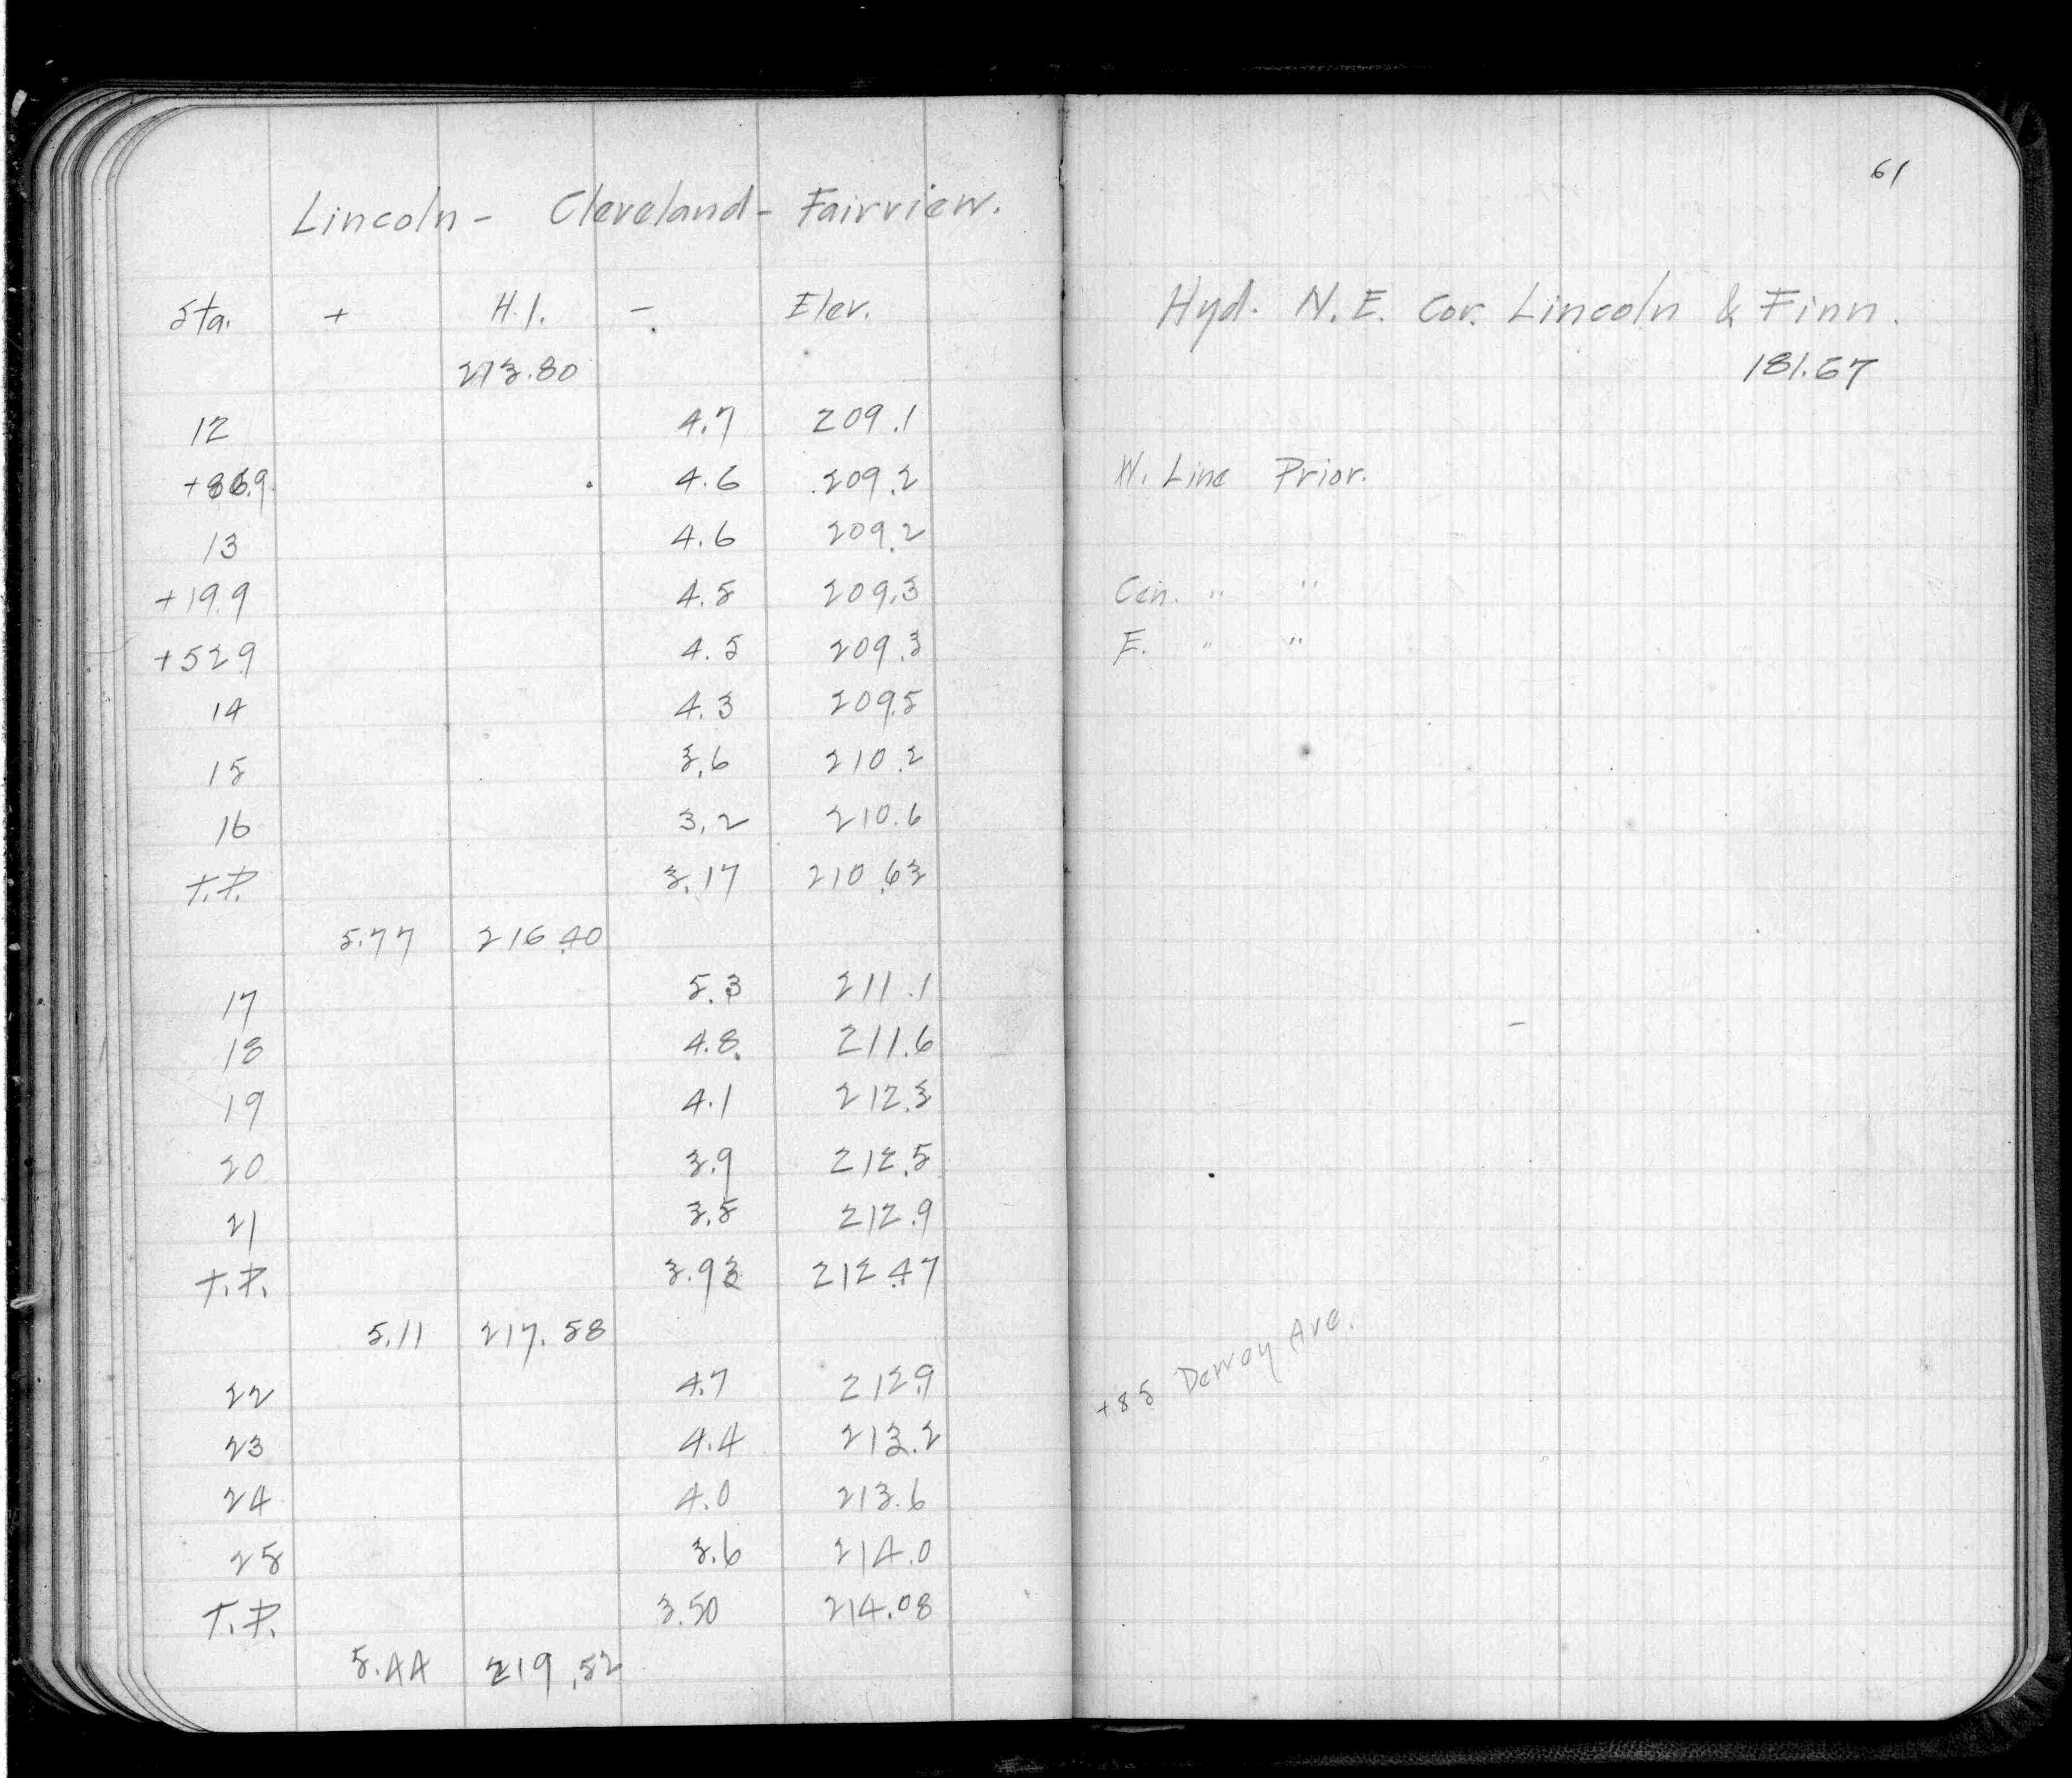 Lincoln - Cleveland - Fairview.
Sta. + H.I. - Elev.
213.80
12 4.7 209.1
+86.9 4.6 209.2
13 4.6 209.2
+19.9 4.5 209.3
+52.9 4.5 209.3
14 4.3 209.5
15 3.6 210.2
16 3.2 210.6
T.P. 3.17 210.63
5.77 216.40
17 5.3 211.1
18 4.8 211.6
19 4.1 212.3
20 3.9 212.5
21 3.5 212.9
T.P. 3.93 212.47
5.11 217.58
22 4.7 212.9
23 4.4 213.2
24 4.0 213.6
25 3.6 214.0
T.P. 3.50 214.08
5.44 219.52
61
Hyd. N.E. Cor. Lincoln & Finn.
181.67
W. Line Prior.
Cen. " "
E. " "
+85 Ave.